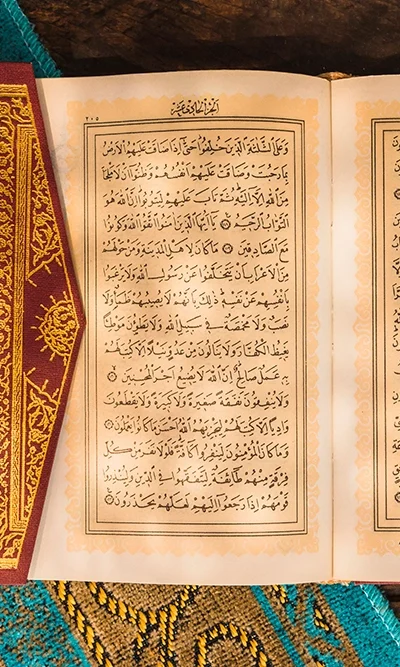 الجزء الحادي عشر
٢٠٥
وَعَلَى الثَّلٰثَةِ الَّذِينَ خُلِّفُوا حَتَّى إِذَا ضَاقَتْ عَلَيْهِمُ الْأَرْضُ
بِمَا رَحُبَتْ وَضَاقَتْ عَلَيْهِمْ أَنْفُسُهُمْ وَظَنُّوا أَنْ لَا مَلْجَأَ
مِنَ اللهِ إِلَّا إِلَيْهِ ثُمَّ تَابَ عَلَيْهِمْ لِيَتُوبُوا إِنَّ اللهَ هُوَ
التَّوَّابُ الرَّحِيمُ ۝ يَا أَيُّهَا الَّذِينَ آمَنُوا اتَّقُوا اللهَ وَكُونُوا
مَعَ الصَّادِقِينَ ۝ مَا كَانَ لِأَهْلِ الْمَدِينَةِ وَمَنْ حَوْلَهُمْ
مِنَ الْأَعْرَابِ أَنْ يَتَخَلَّفُوا عَنْ رَسُولِ اللهِ وَلَا يَرْغَبُوا
بِأَنْفُسِهِمْ عَنْ نَفْسِهِ ذٰلِكَ بِأَنَّهُمْ لَا يُصِيبُهُمْ ظَمَأٌ وَلَا
نَصَبٌ وَلَا مَخْمَصَةٌ فِي سَبِيلِ اللهِ وَلَا يَطَؤُنَ مَوْطِئًا
يَغِيظُ الْكُفَّارَ وَلَا يَنَالُونَ مِنْ عَدُوٍّ نَيْلًا إِلَّا كُتِبَ لَهُمْ
بِهِ عَمَلٌ صَالِحٌ إِنَّ اللهَ لَا يُضِيعُ أَجْرَ الْمُحْسِنِينَ ۝
وَلَا يُنْفِقُونَ نَفَقَةً صَغِيرَةً وَلَا كَبِيرَةً وَلَا يَقْطَعُونَ
وَادِيًا إِلَّا كُتِبَ لَهُمْ لِيَجْزِيَهُمُ اللهُ أَحْسَنَ مَا كَانُوا يَعْمَلُونَ ۝
وَمَا كَانَ الْمُؤْمِنُونَ لِيَنْفِرُوا كَافَّةً فَلَوْلَا نَفَرَ مِنْ كُلِّ
فِرْقَةٍ مِنْهُمْ طَائِفَةٌ لِيَتَفَقَّهُوا فِي الدِّينِ وَلِيُنْذِرُوا
قَوْمَهُمْ إِذَا رَجَعُوا إِلَيْهِمْ لَعَلَّهُمْ يَحْذَرُونَ ۝